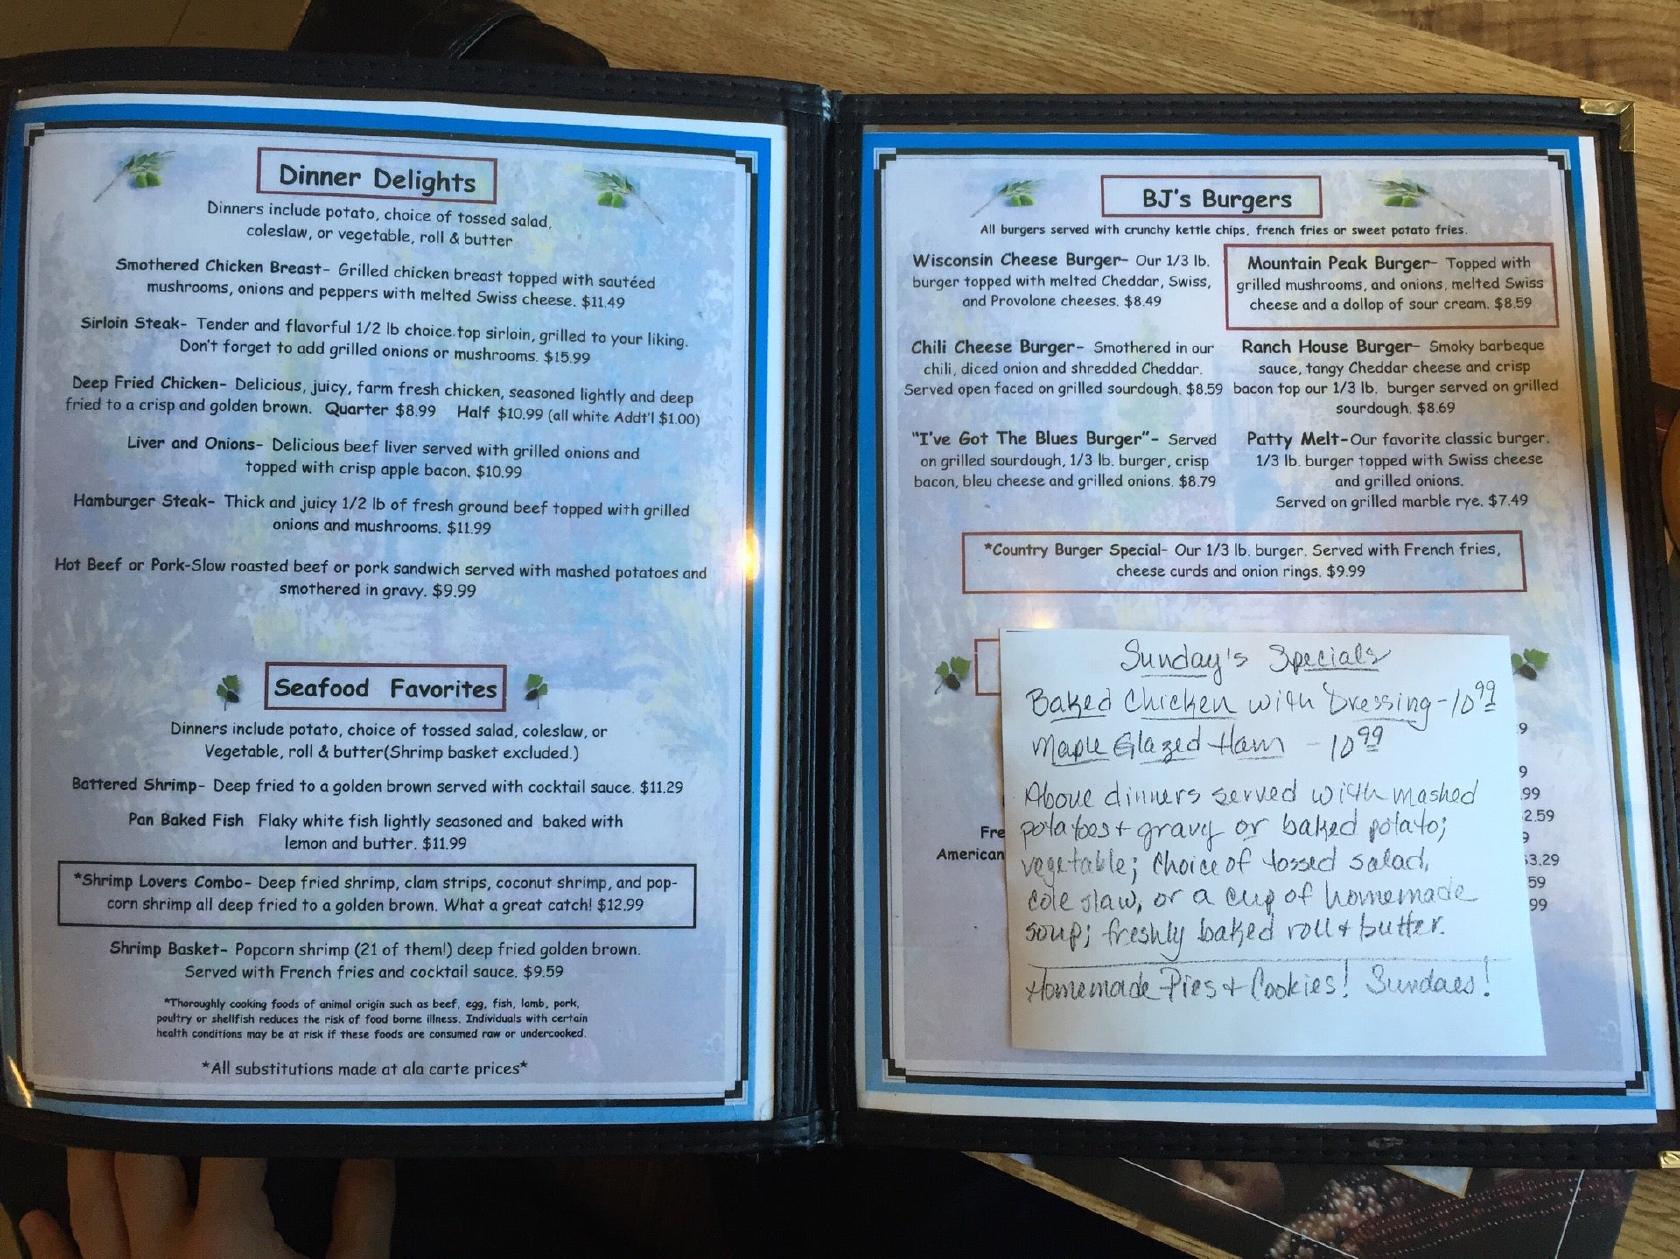 Dinner Delights
Dinners include potato, choice of tossed salad,
coleslaw, or vegetable, roll & butter
Smothered Chicken Breast- Grilled chicken breast topped with sautéed
mushrooms, onions and peppers with melted Swiss cheese. $11.49
Sirloin Steak- Tender and flavorful 1/2 lb choice top sirloin, grilled to your liking.
Don't forget to add grilled onions or mushrooms. $15.99
Deep Fried Chicken- Delicious, juicy, farm fresh chicken, seasoned lightly and deep
fried to a crisp and golden brown. Quarter $8.99 Half $10.99 (all white Addt'l $1.00)
Liver and Onions- Delicious beef liver served with grilled onions and
topped with crisp apple bacon. $10.99
Hamburger Steak- Thick and juicy 1/2 lb of fresh ground beef topped with grilled
onions and mushrooms. $11.99
Hot Beef or Pork-Slow roasted beef or pork sandwich served with mashed potatoes and
smothered in gravy. $9.99
Seafood Favorites
Dinners include potato, choice of tossed salad, coleslaw, or
Vegetable, roll & butter(Shrimp basket excluded.)
Battered Shrimp- Deep fried to a golden brown served with cocktail sauce. $11.29
Pan Baked Fish Flaky white fish lightly seasoned and baked with
lemon and butter. $11.99
*Shrimp Lovers Combo- Deep fried shrimp, clam strips, coconut shrimp, and pop-
corn shrimp all deep fried to a golden brown. What a great catch! $12.99
Shrimp Basket- Popcorn shrimp (21 of them!) deep fried golden brown.
Served with French fries and cocktail sauce. $9.59
*Thoroughly cooking foods of animal origin such as beef, egg, fish, lamb, pork,
poultry or shellfish reduces the risk of food borne illness. Individuals with certain
health conditions may be at risk if these foods are consumed raw or undercooked.
*All substitutions made at ala carte prices*
BJ's Burgers
All burgers served with crunchy kettle chips, french fries or sweet potato fries.
Wisconsin Cheese Burger- Our 1/3 lb.
burger topped with melted Cheddar, Swiss,
and Provolone cheeses. $8.49
Mountain Peak Burger- Topped with
grilled mushrooms, and onions, melted Swiss
cheese and a dollop of sour cream. $8.59
Chili Cheese Burger- Smothered in our
chili, diced onion and shredded Cheddar.
Served open faced on grilled sourdough. $8.59
Ranch House Burger- Smoky barbeque
sauce, tangy Cheddar cheese and crisp
bacon top our 1/3 lb. burger served on grilled
sourdough. $8.69
"I've Got The Blues Burger"- Served
on grilled sourdough, 1/3 lb. burger, crisp
bacon, bleu cheese and grilled onions. $8.79
Patty Melt-Our favorite classic burger.
1/3 lb. burger topped with Swiss cheese
and grilled onions.
Served on grilled marble rye. $7.49
*Country Burger Special- Our 1/3 lb. burger. Served with French fries,
cheese curds and onion rings. $9.99
Sunday's Specials
Baked Chicken with Dressing - 10 99
Maple Glazed Ham - 10 99
Above dinners served with mashed
potatoes + gravy or baked potato;
vegetable; choice of tossed salad,
cole slaw, or a cup of homemade
soup; freshly baked roll + butter.
Homemade Pies + Cookies! Sundaes!
9
9
.99
2.59
Fre 9
American 3.29
59
99